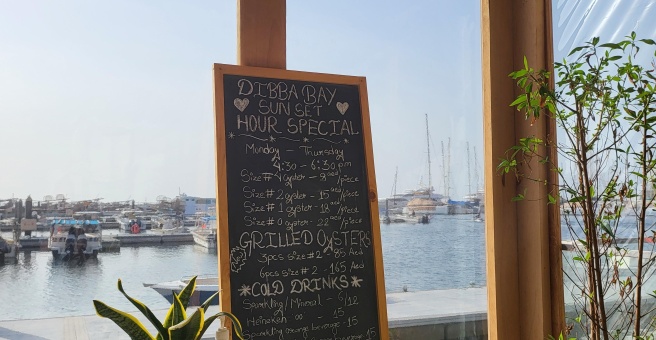 DIBBA BAY
SUNSET
HOUR SPECIAL
Monday - Thursday
4:30 - 6:30 pm
Size # 4 oyster - 9 aed/piece
Size # 2 oyster - 15 aed/piece
Size # 1 oyster - 18 /piece
Size # 0 oyster - 22 /piece
GRILLED OYSTERS
3pcs Size # 2 - 85 Aed
6pcs Size # 2 - 165 Aed
*COLD DRINKS*
Sparkling/Mineral - 9/12
Heineken 00 - 15
Sparkling orange beverage - 15